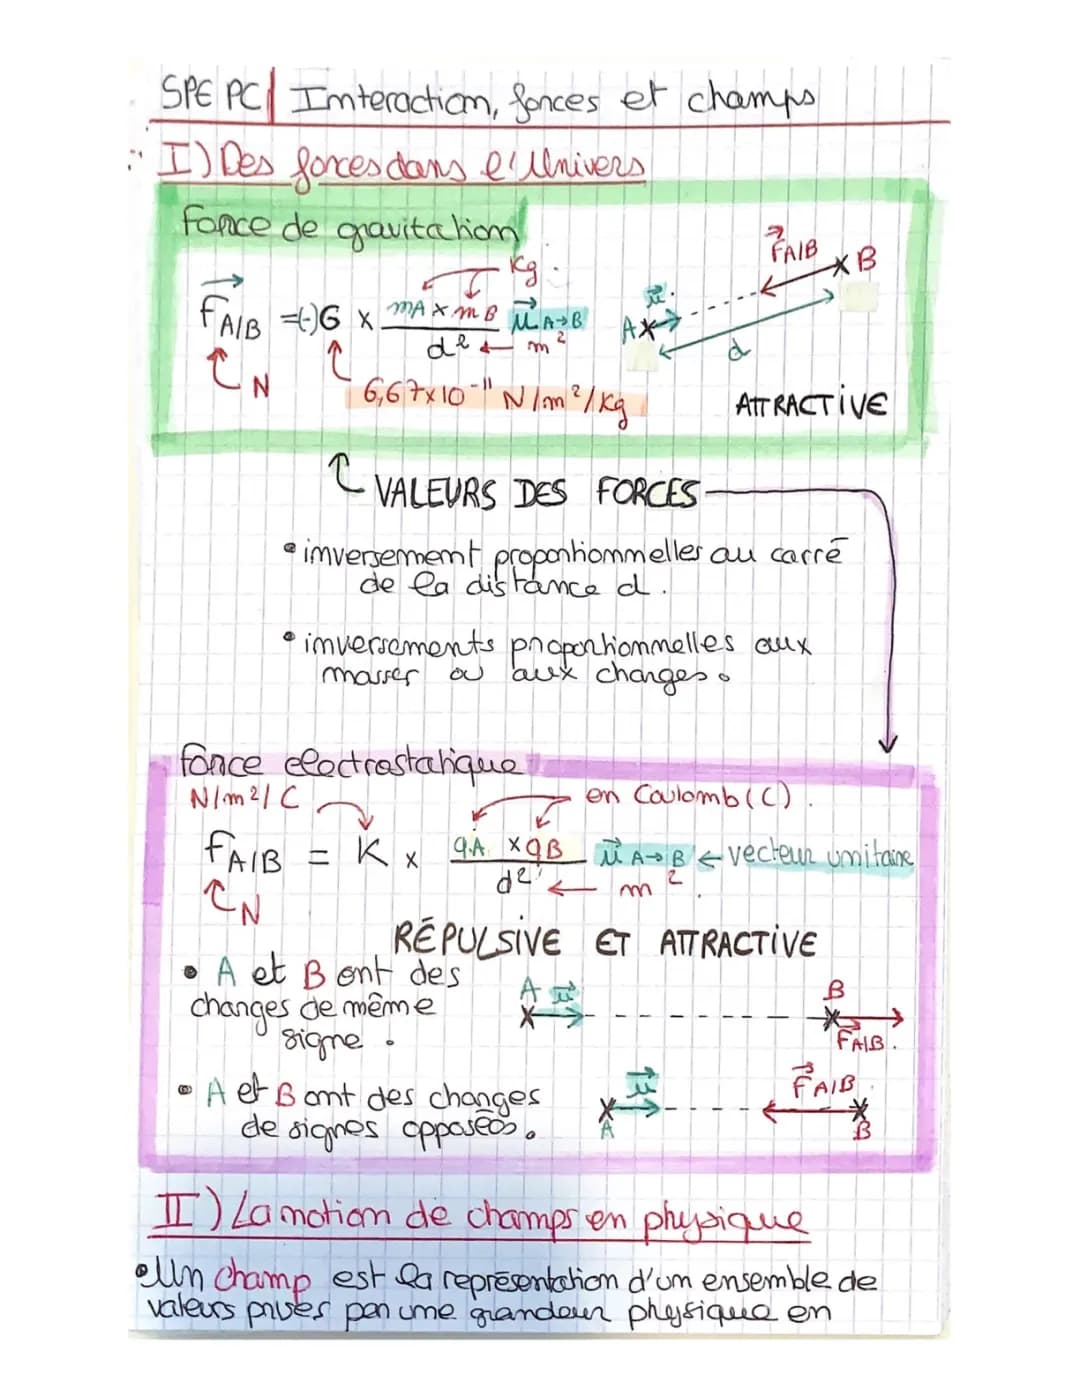 SPE PC | Interaction, forces et champs
I) Des forces dans l'Univers
Force de gravitation
Kg
F A/B = (-) G x mA x mB / d² u A→B
m²
N
6,67x10⁻¹¹ N/m²/Kg
u
A
F A/B
B
d
ATTRACTIVE
VALEURS DES FORCES
• inversement proportionnelles au carré
de la distance d.
• inversements proportionnelles aux
masses ou aux charges.
force electrostatique
N/m²/C
en Coulomb (C).
F A/B = K x qA x qB / d² u A→B ← vecteur unitaire
m²
N
RÉPULSIVE ET ATTRACTIVE
• A et B ont des
charges de même
signe.
A u B
F A/B.
• A et B ont des charges
de signes opposées.
u F A/B
A B
II) La notion de champs en physique
• Un champ est la représentation d'un ensemble de
valeurs prises par une grandeur physique en